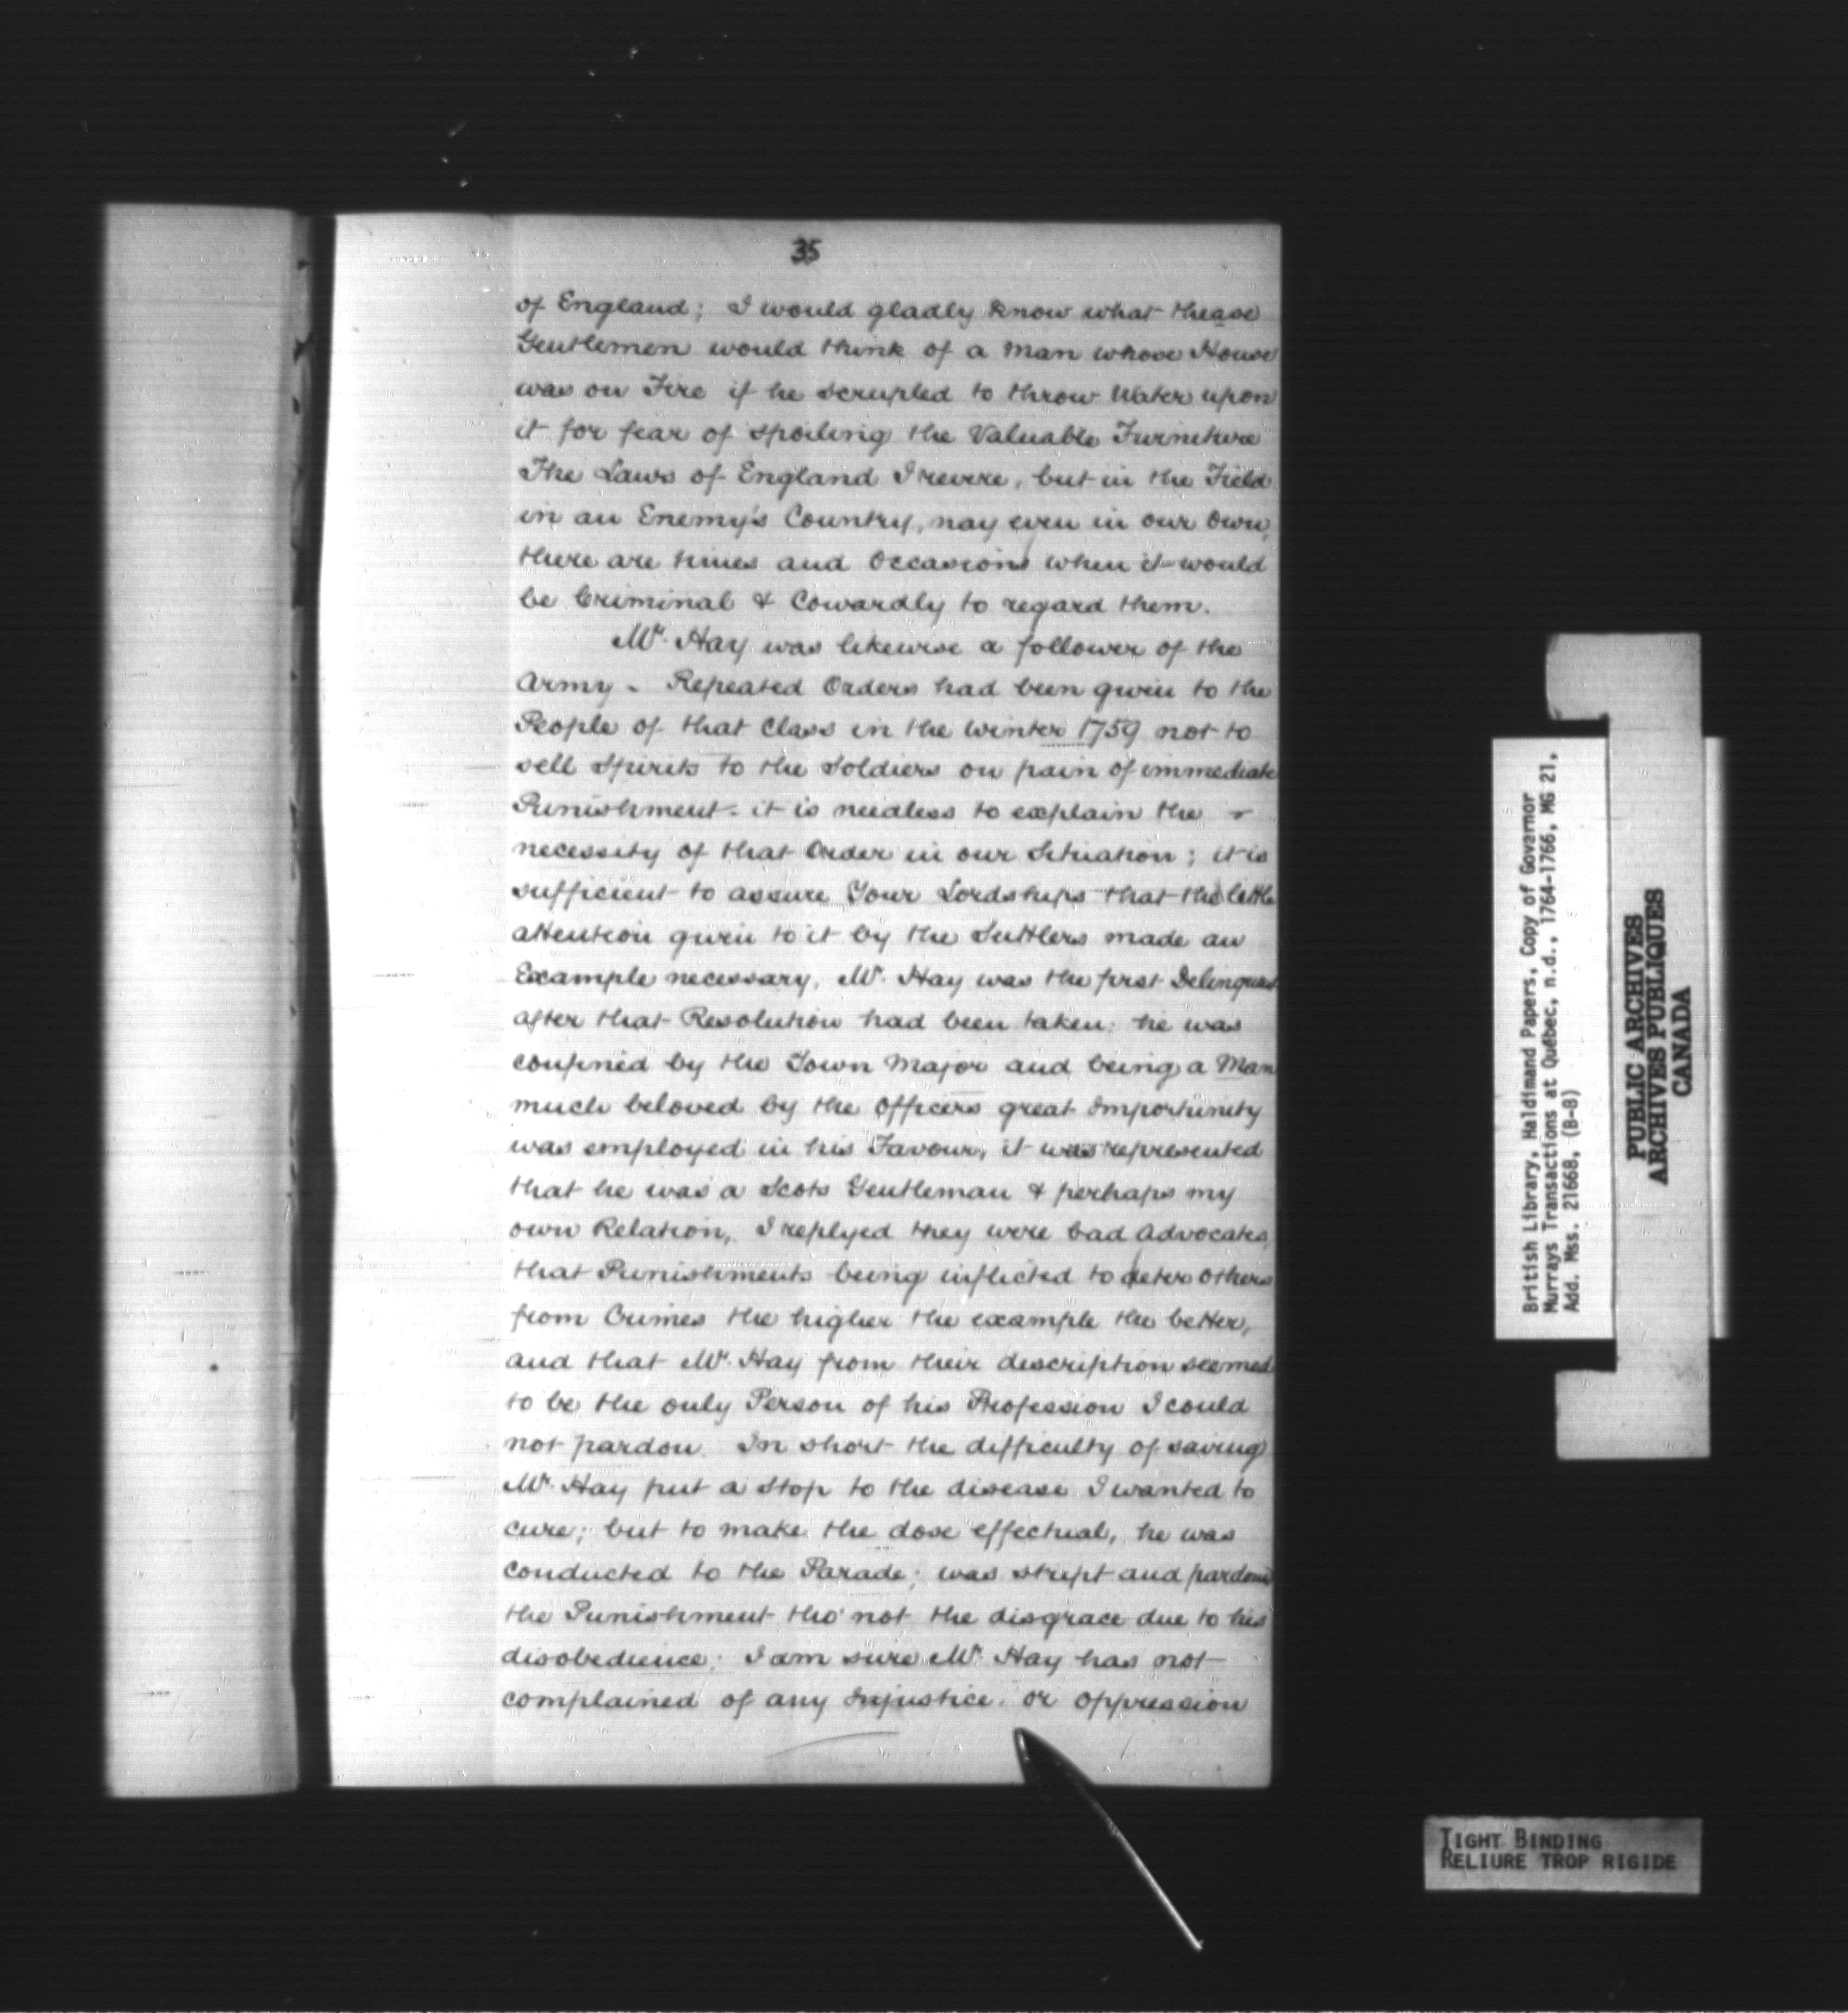 35
of England; I would gladly know what thease
Gentlemen would think of a Man whose House
was on Fire if he scrupled to throw Water upon
it for fear of Spoiling the Valuable Furniture
The Laws of England I revere, but in the Field
in an Enemy's Country, nay even in our Own,
there are times and Occasions when it would
be Criminal & Cowardly to regard them.
Mr. Hay was likewise a follower of the
Army - Repeated Orders had been given to the
People of that Class in the Winter 1759 not to
sell Spirits to the Soldiers on pain of immediate
Punishment - it is needless to explain the
necessity of that Order in our Situation; it is
sufficient to assure Your Lordships that the little
attention given to it by the Suttlers made an
Example necessary. Mr. Hay was the first Delinquent
after that Resolution had been taken: he was
confined by the Town Major and being a Man
much beloved by the Officers great Importunity
was employed in his Favour, it was represented
that he was a Scots Gentleman & perhaps my
own Relation, I replyed they were bad Advocates,
that Punishments being inflicted to deter others
from Crimes the higher the example the better,
and that Mr. Hay from their description seemed
to be the only Person of his Profession I could
not pardon. In short the difficulty of saving
Mr. Hay put a Stop to the disease I wanted to
cure; but to make the dose effectual, he was
conducted to the Parade; was stript and pardoned
the Punishment tho' not the disgrace due to his
disobedience; I am sure Mr. Hay has not
complained of any Injustice, or Oppression
British Library, Haldimand Papers, Copy of Governor
Murrays Transactions at Québec, n.d., 1764-1766, MG 21,
Add. Mss. 21668, (B-8)
PUBLIC ARCHIVES
ARCHIVES PUBLIQUES
CANADA
TIGHT BINDING
RELIURE TROP RIGIDE